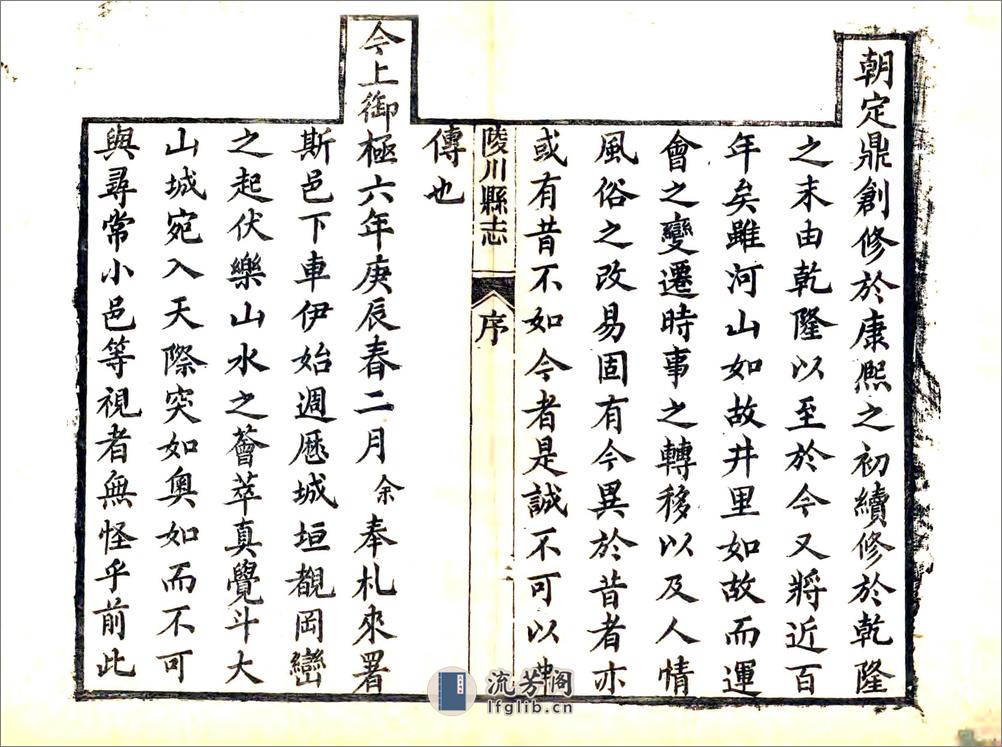 朝定鼎創修於康熙之初續修於乾隆
之末由乾隆以至於今又將近百
年矣雖河山如故井里如故而運
會之變遷時事之轉移以及人情
風俗之改易固有今異於昔者亦
或有昔不如今者是誠不可以
陵川縣志
序
傳也
今上御極六年庚辰春二月余奉札來署
斯邑下車伊始週厯城垣覩岡巒
之起伏樂山水之薈萃真覺斗大
山城宛入天際突如奧如而不可
與尋常小邑等視者無怪乎前此
流芳閣
lfglib.cn